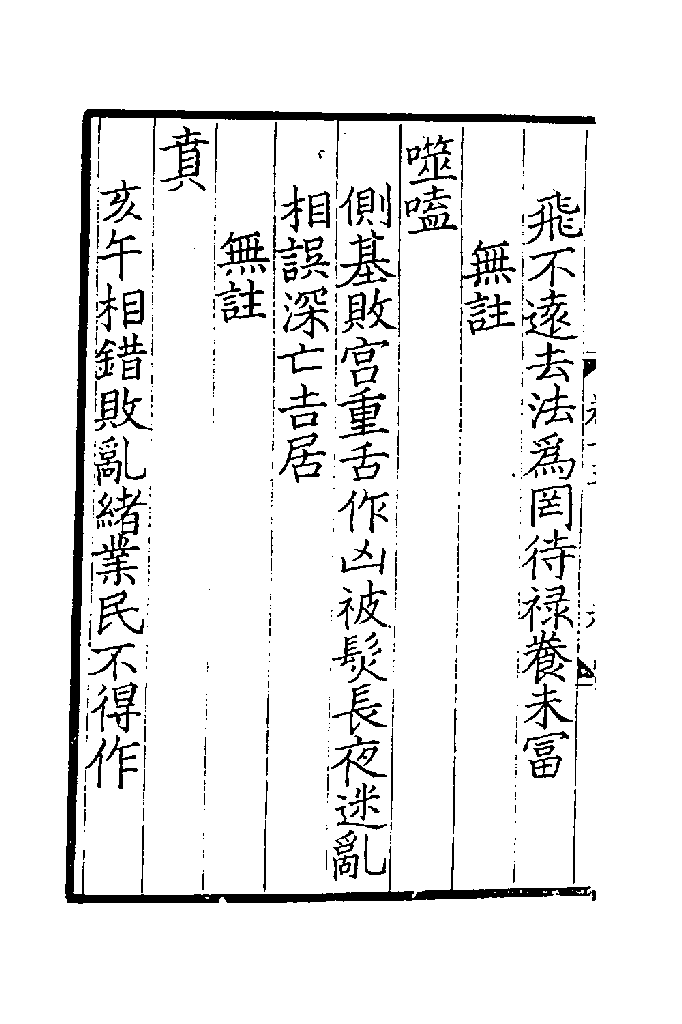 飛不遠去法爲罔待祿養未富
無註
噬嗑
側基敗宫重舌作凶被髮長夜迷亂
相誤深亡吉居
無註
賁
亥午相錯敗亂緒業民不得作